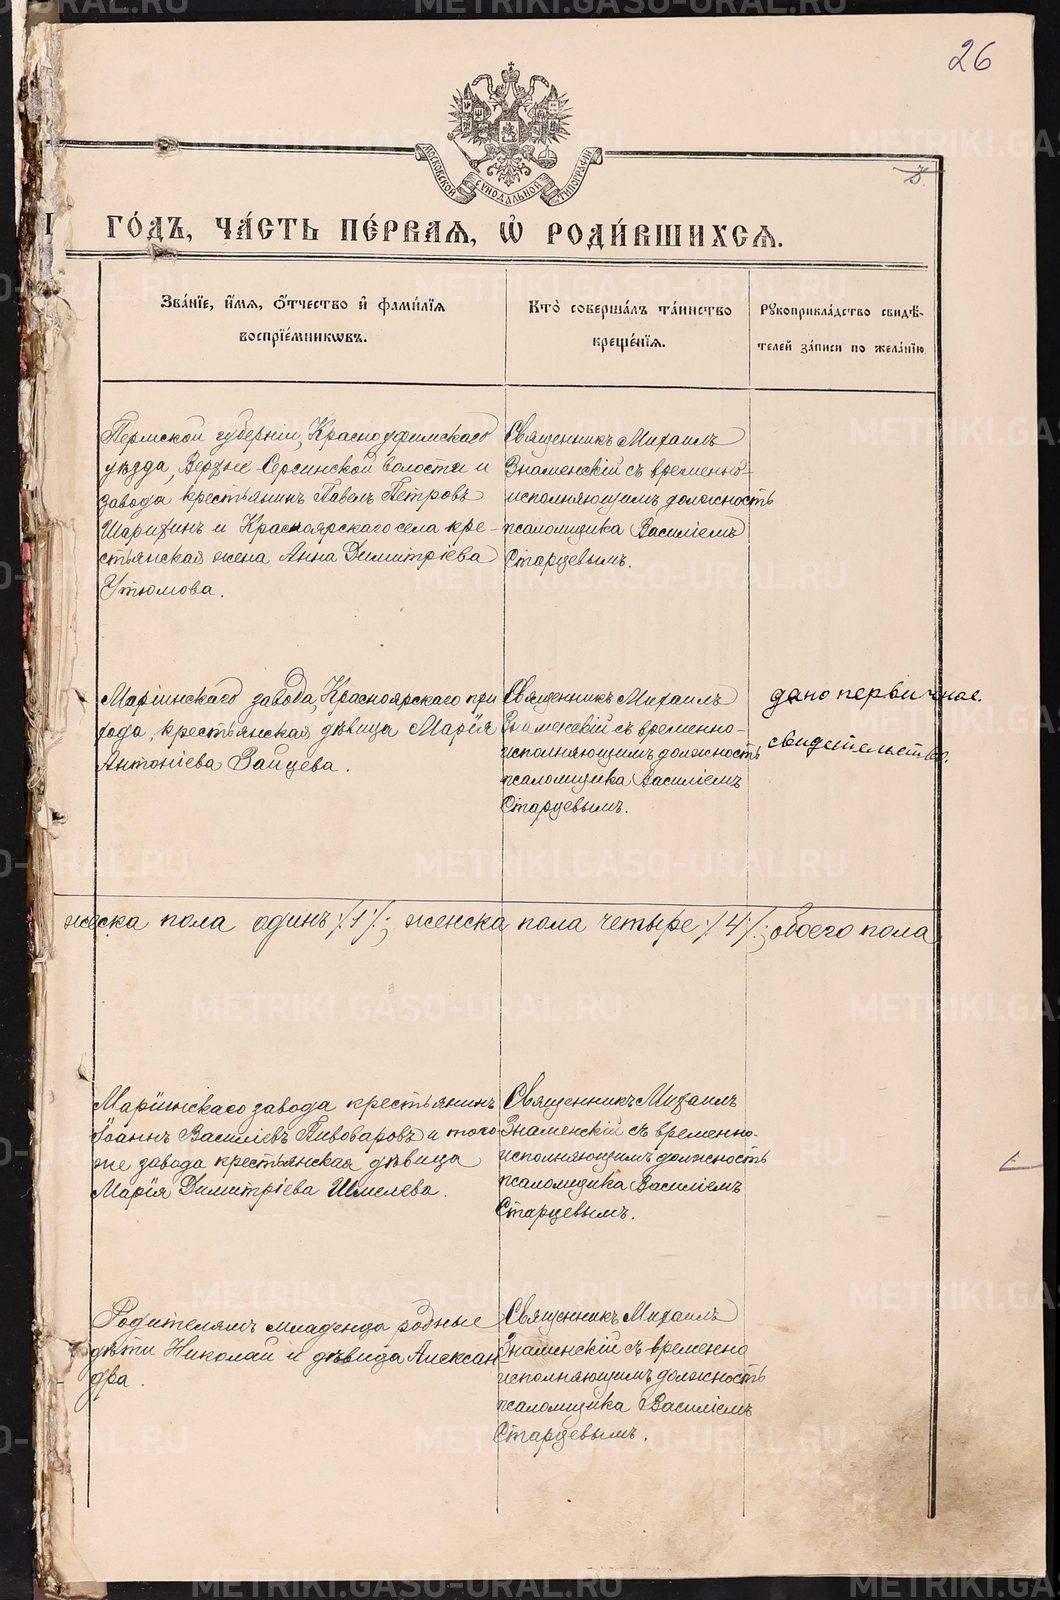 26
МОСКОВСКОЙ СѴНОДАЛЬНОЙ ТИПОГРАФІИ
ГО́ДЪ, ЧА́СТЬ ПЕ́РВАѦ, Ѡ҆ РОДИ́ВШИХСѦ.
Зва́нїе, и҆́мѧ, ѻ҆́тчество и҆ фами́лїѧ
воспрїе́мникѡвъ.
Кто̀ соверша́лъ та́инство
креще́нїѧ.
Рꙋкоприкла́дство свидѣ́-
телей за́писи по жела́нїю
Пермской губерніи, Красноуфимскаго
уѣзда, Верхне Серсинской волости и
завода крестьянинъ Павелъ Петровъ
Шарихинъ и Красноярскаго села кре-
стьянская жена Анна Димитріева
Утюмова.
Священникъ Михаилъ
Знаменскій съ временно-
исполняющимъ должность
псаломщика Василіемъ
Старцевымъ.
Маріинскаго завода, Красноярскаго при
хода, крестьянская дѣвица Марія
Антоніева Зайцева.
Священникъ Михаилъ
Знаменскій съ временно-
исполняющимъ должность
псаломщика Василіемъ
Старцевымъ.
дано первичное.
свидетельство.
жеска пола одинъ /1/; женска пола четыре /4/; обоего пола
Маріинскаго завода крестьянинъ
Іоаннъ Василіевъ Пивоваровъ и того-
же завода крестьянская дѣвица
Марія Димитріева Шмелева.
Священникъ Михаилъ
Знаменскій съ временно-
исполняющимъ должность
псаломщика Василіемъ
Старцевымъ.
Родителямъ младенца родные
дѣти Николай и дѣвица Алексан-
дра.
Священникъ Михаилъ
Знаменскій съ временно
исполняющимъ должность
псаломщика Василіемъ
Старцевымъ.
METRIKI.GASO-URAL.RU